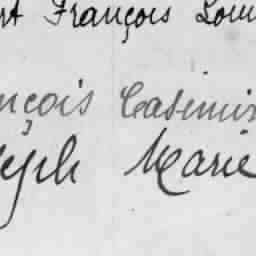 rt François Loui
nçois Casimir
seph Marie